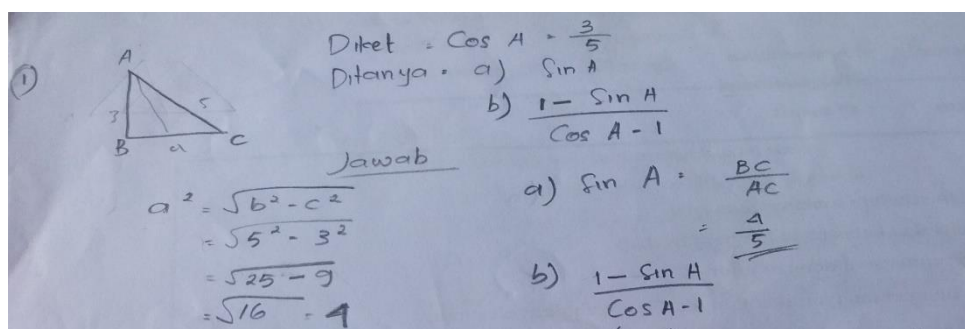 ①
A
3
5
B
a
C
Diket = Cos A = 3/5
Ditanya = a) Sin A
b) 1 - Sin A / Cos A - 1
Jawab
a² = √b² - c²
= √5² - 3²
= √25 - 9
= √16 = 4
a) Sin A = BC/AC
= 4/5
b) 1 - Sin A / Cos A - 1